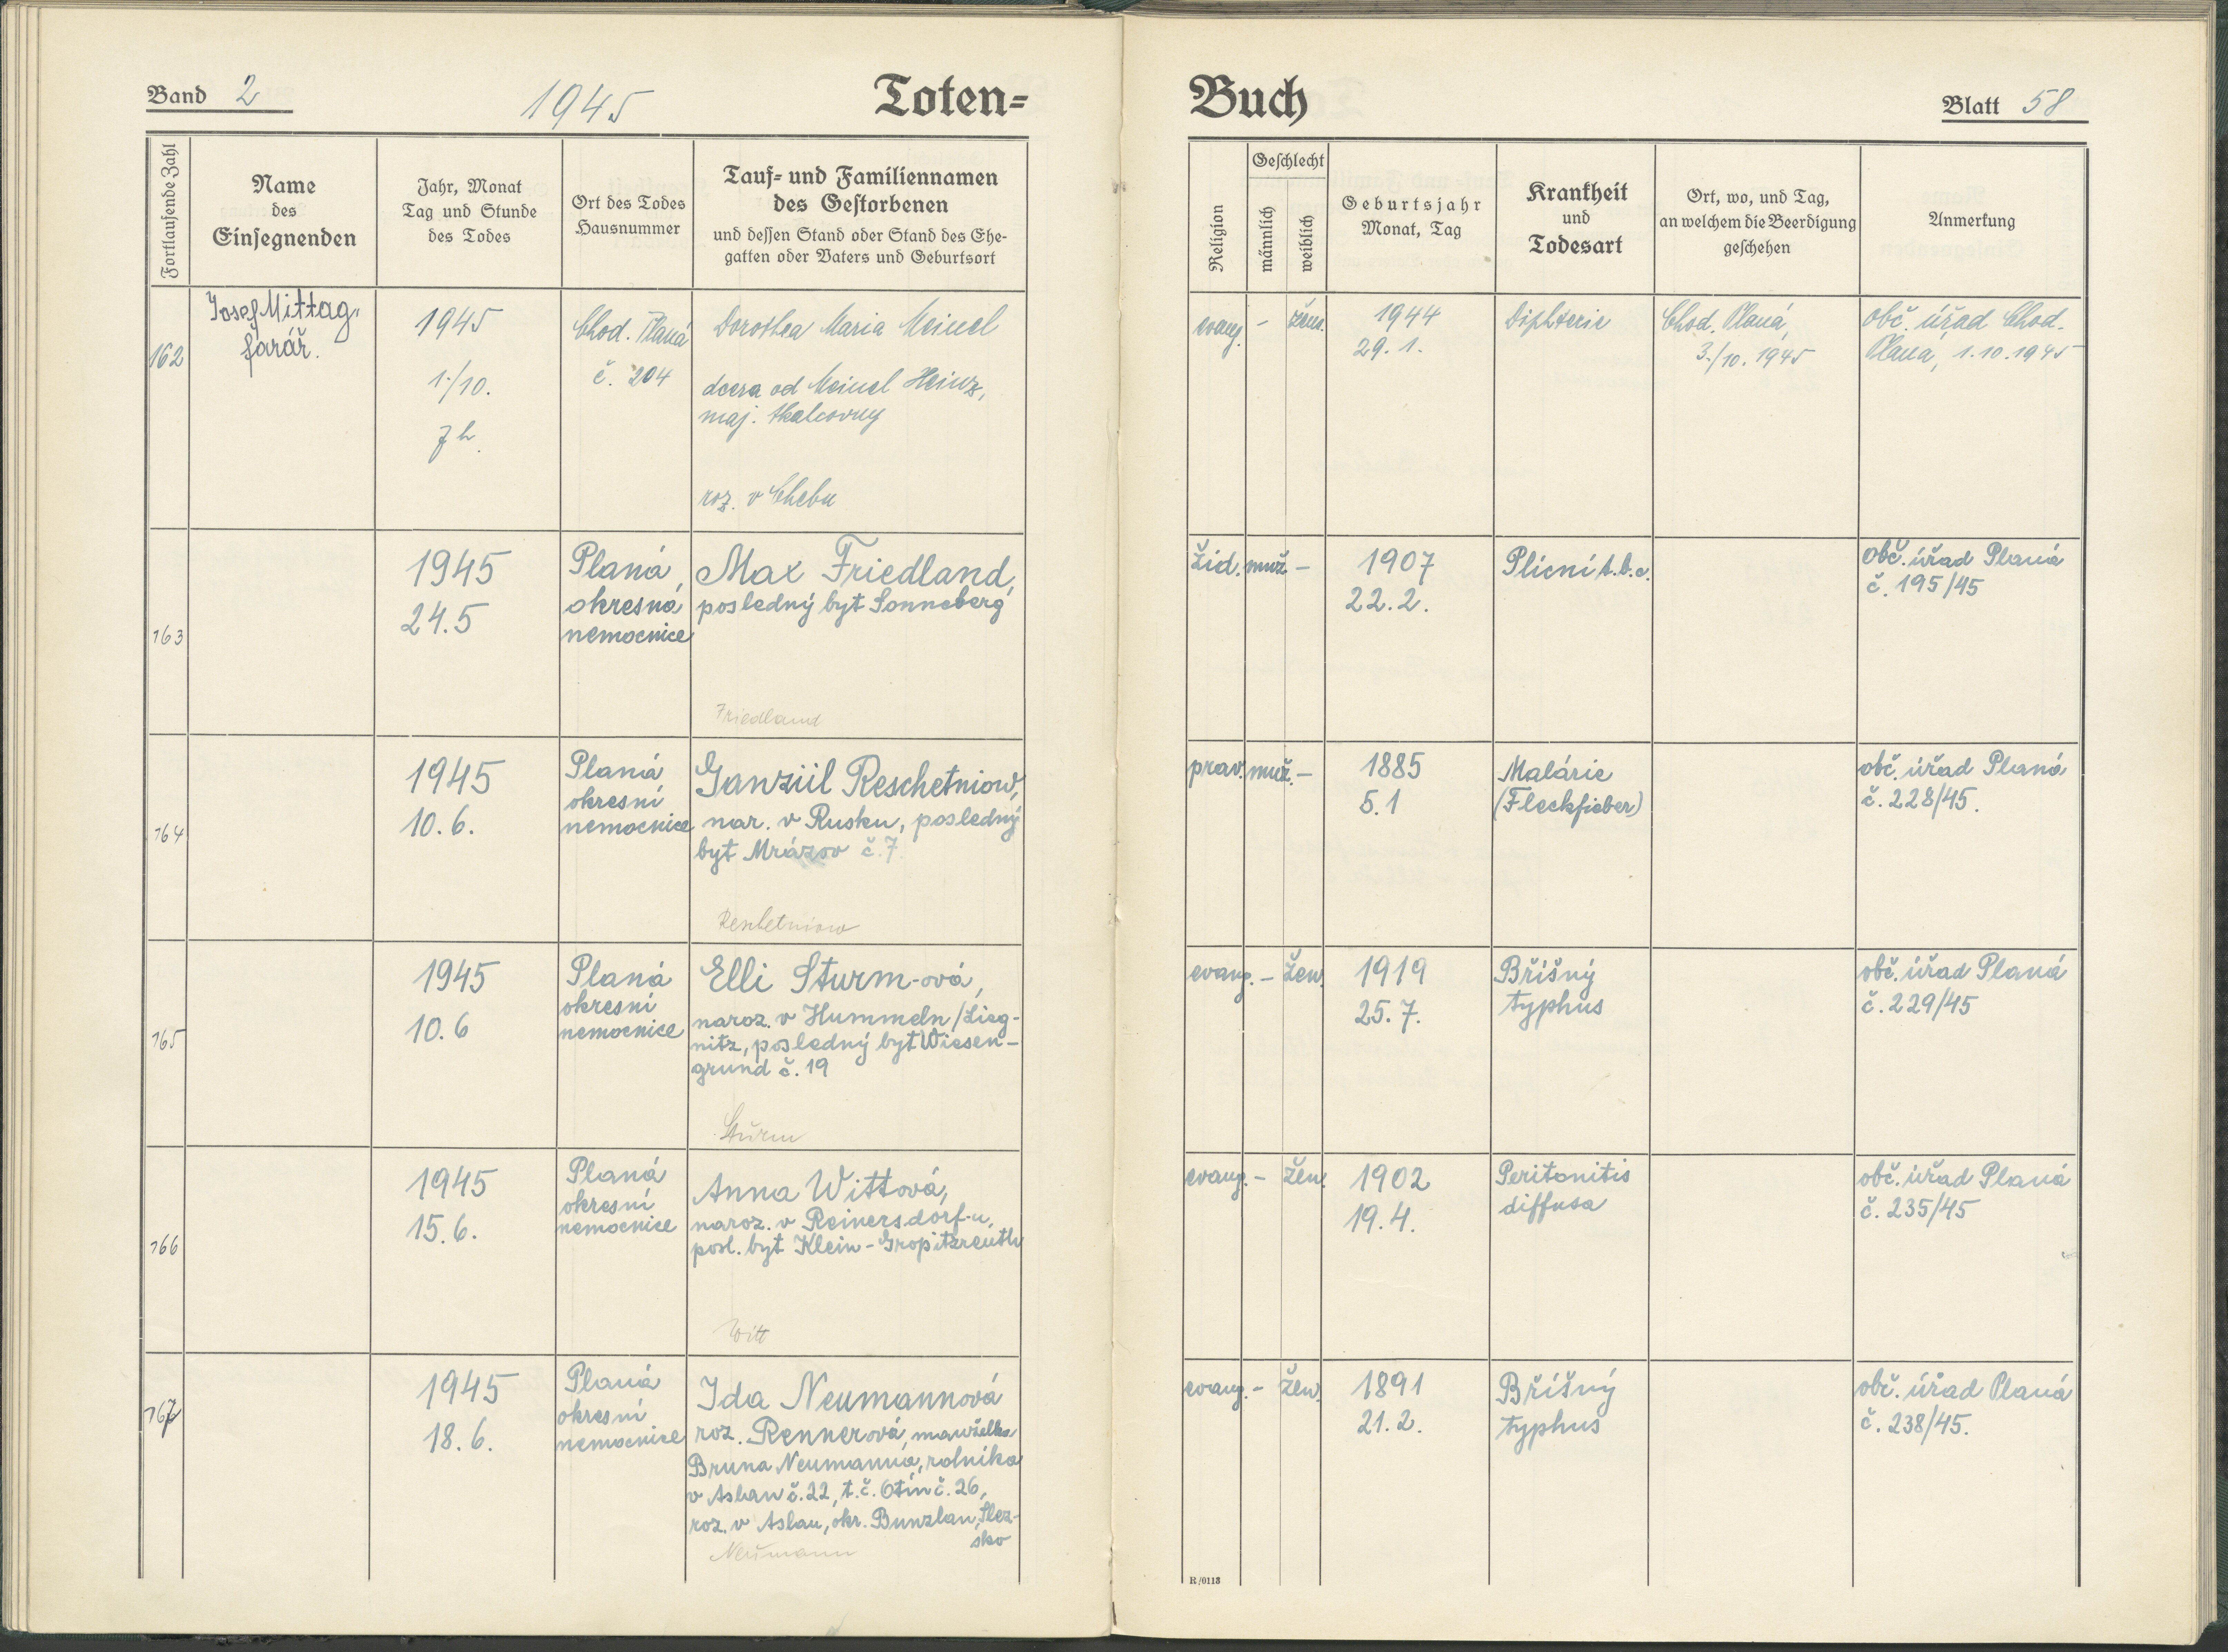 Band 2
1945
Toten=
Fortlaufende Zahl
Name
des
Einsegnenden
Jahr, Monat
Tag und Stunde
des Todes
Ort des Todes
Hausnummer
Tauf= und Familiennamen
des Gestorbenen
und dessen Stand oder Stand des Ehe-
gatten oder Vaters und Geburtsort
162
Josef Mittag,
farář.
1945
1./10.
7 h.
Chod. Planá
č. 204
Dorothea Maria Meinel
dcera od Meinel Heinz,
maj. tkalcovny
roz. v Chebu
163
1945
24.5
Planá,
okresná
nemocnice
Max Friedland,
posledný byt Sonneberg
Friedland
164
1945
10.6.
Planá
okresní
nemocnice
Ganziil Reschetniow,
nar. v Rusku, posledný
byt Mrázov č.7.
Reschetniow
165
1945
10.6
Planá
okresní
nemocnice
Elli Sturm-ová,
naroz. v Hummeln/Lieg-
nitz, posledný byt Wiesen-
grund č.19
Sturm
166
1945
15.6.
Planá
okresní
nemocnice
Anna Wittová,
naroz. v Reinersdorf-u,
posl. byt Klein-Gropitzreuth
Witt
167
1945
18.6.
Planá
okresní
nemocnice
Ida Neumannová
roz. Rennerová, manželka
Bruna Neumanna, rolníka
v Aslau č.22, t.č. Otín č.26,
roz. v Aslau, okr. Bunzlau, Slez-
sko
Neumann
Buch
Blatt 58
Religion
Geschlecht
männlich
weiblich
Geburtsjahr
Monat, Tag
Krankheit
und
Todesart
Ort, wo, und Tag,
an welchem die Beerdigung
geschehen
Anmerkung
evang.
-
žens.
1944
29. 1.
Diphterie
Chod. Planá,
3./10. 1945
Obč. úřad Chod.
Planá, 1.10.1945
žid.
muž
-
1907
22.2.
Plicní t.b.c.
Obč. úřad Planá
č.195/45
prav.
muž.
-
1885
5.1
Malárie
(Fleckfieber)
obč. úřad Planá
č.228/45.
evang.
-
žen.
1919
25.7.
Břišný
typhus
obč. úřad Planá
č.229/45
evang.
-
žen.
1902
19.4.
Peritonitis
diffusa
obč. úřad Planá
č.235/45
evang.
-
žen.
1891
21.2.
Břišný
typhus
obč. úřad Planá
č.238/45.
R/0113